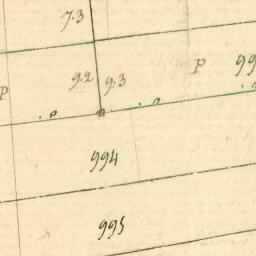 7.3
9.2 9.3 P 99
P
994
995